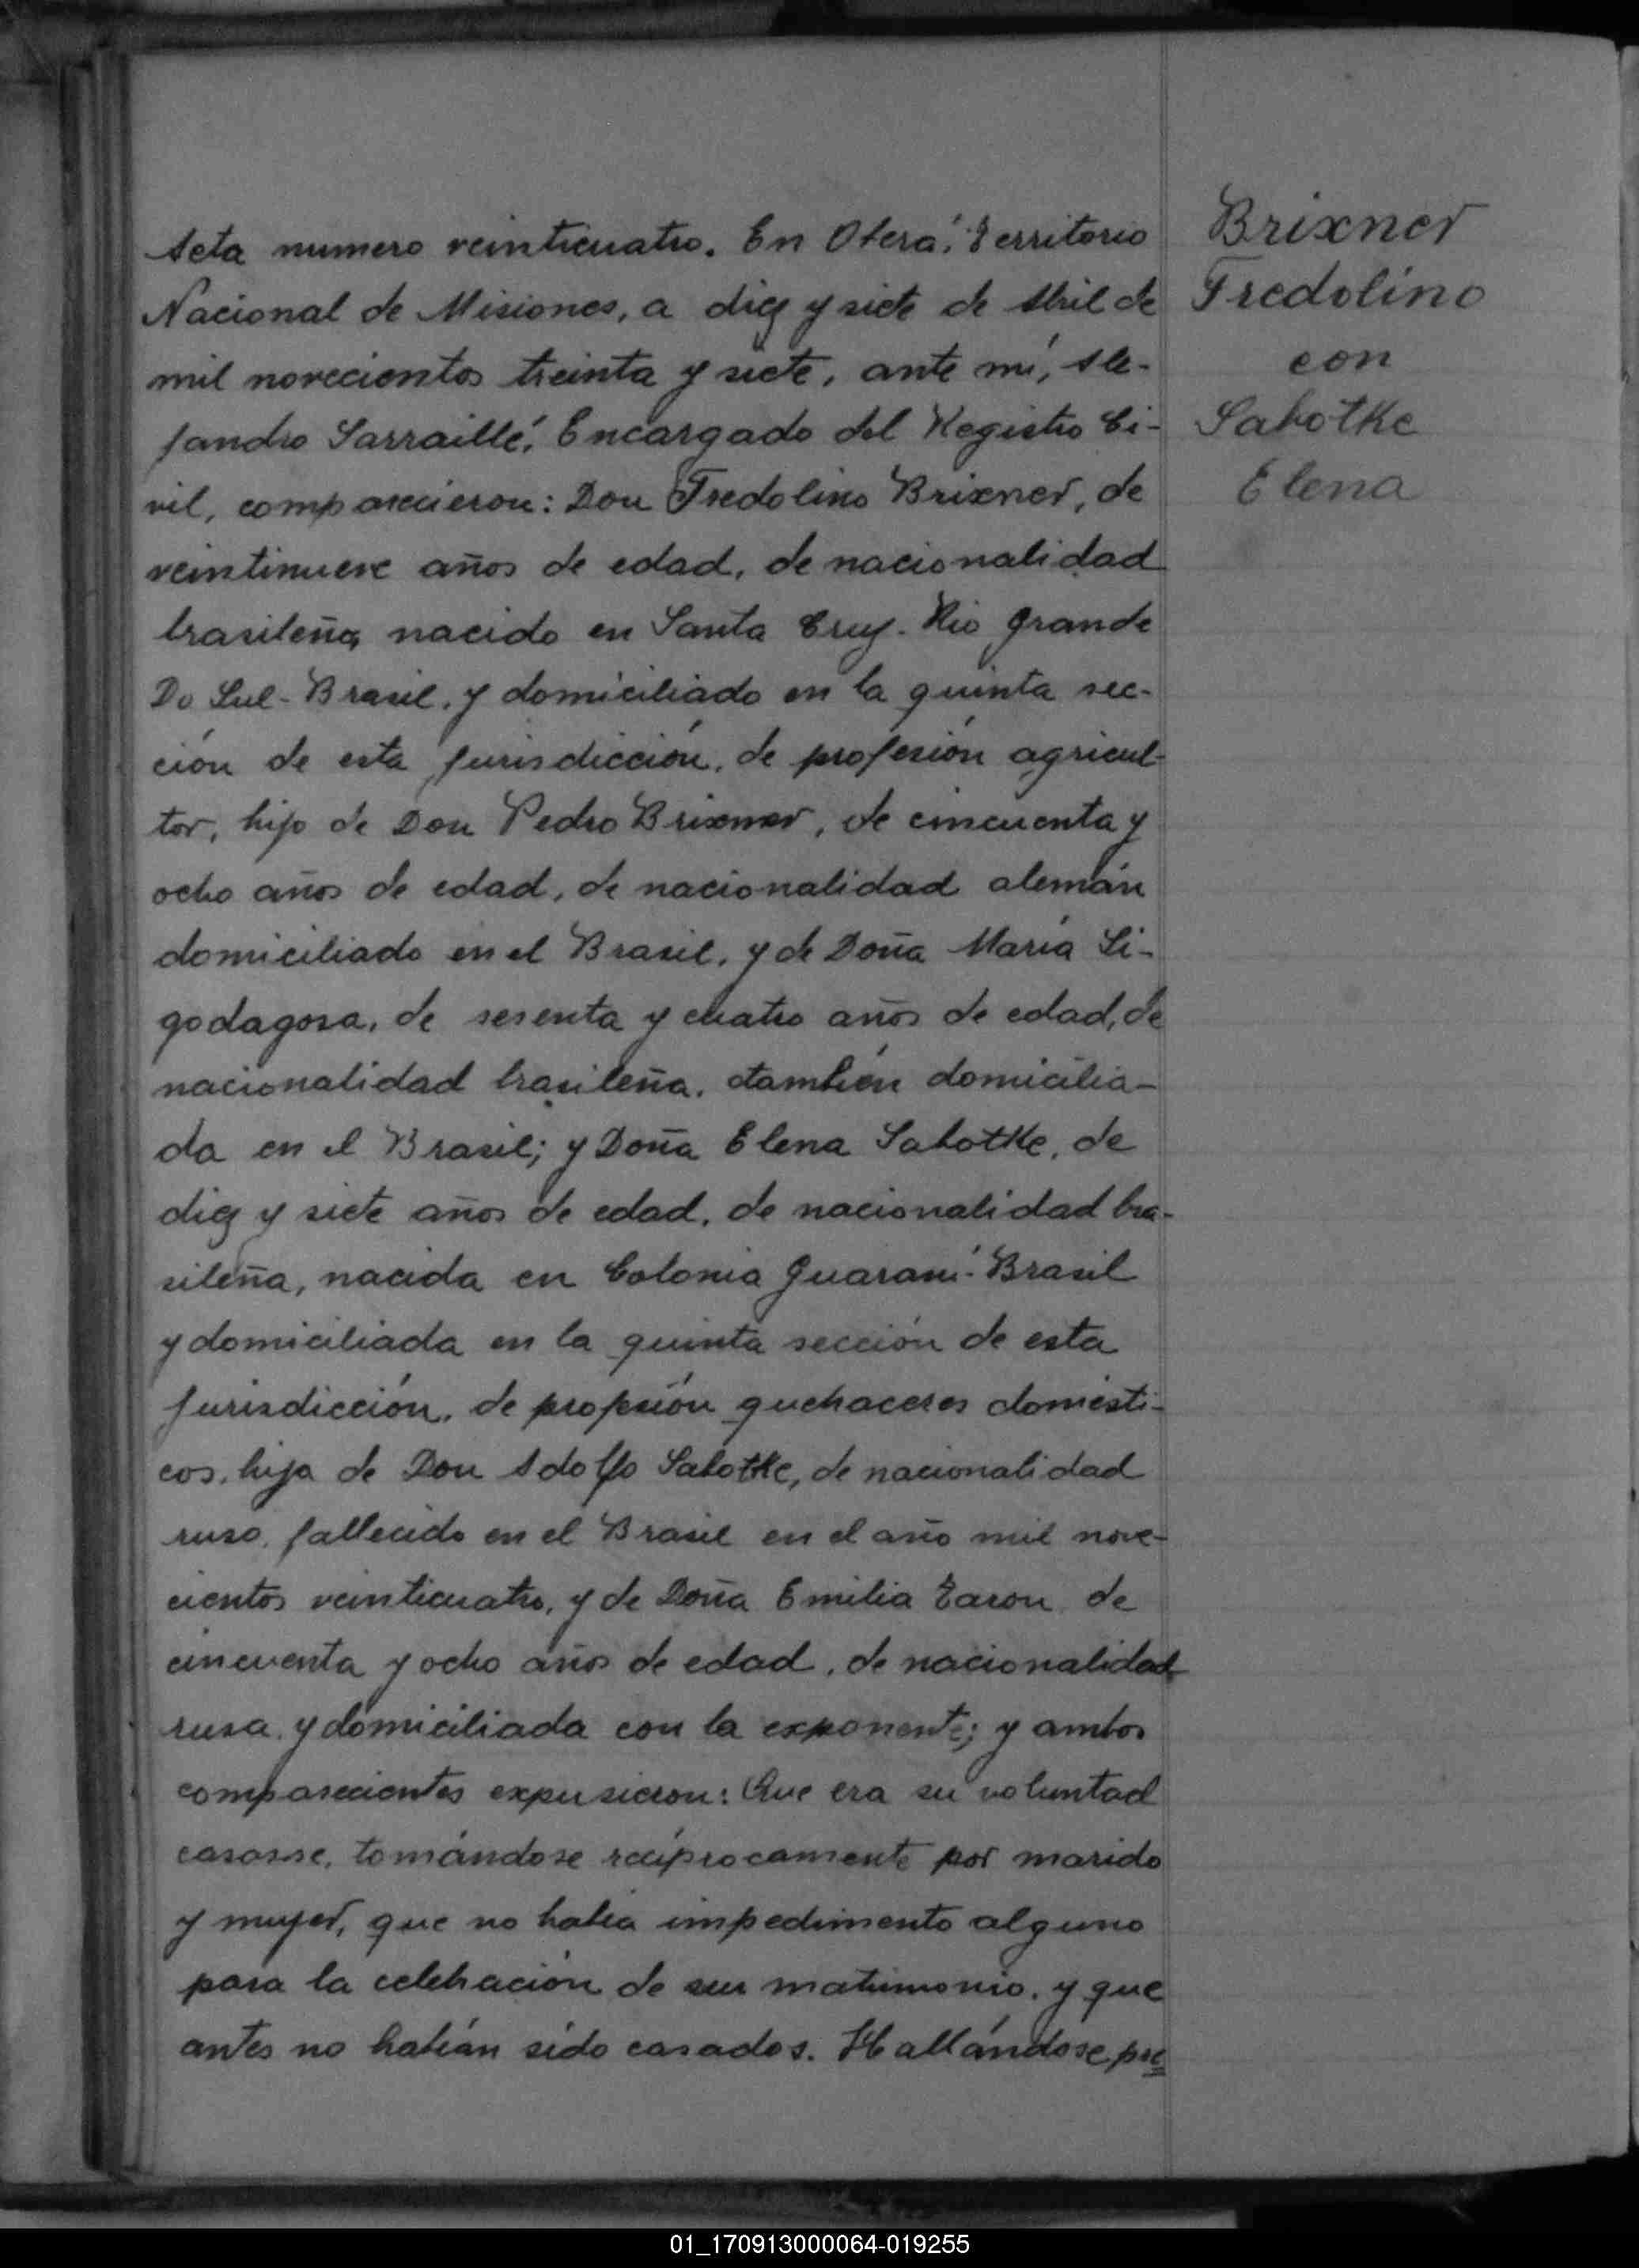 Acta numero veinticuatro. En Oberá, Territorio
Nacional de Misiones, a diez y siete de Abril de
mil novecientos treinta y siete, ante mí, Ale-
jandro Sarraillé, Encargado del Registro Ci-
vil, comparecieron: Don Fredolino Brixner, de
veintinueve años de edad, de nacionalidad
brasileña, nacido en Santa Cruz - Rio Grande
Do Sul - Brasil, y domiciliado en la quinta sec-
ción de esta jurisdicción, de profesión agricul-
tor, hijo de Don Pedro Brixner, de cincuenta y
ocho años de edad, de nacionalidad alemán
domiciliado en el Brasil, y de Doña María Li-
godagosa, de sesenta y cuatro años de edad, de
nacionalidad brasileña, también domicilia-
da en el Brasil; y Doña Elena Sabotke, de
diez y siete años de edad, de nacionalidad bra-
sileña, nacida en Colonia Guaraní - Brasil
y domiciliada en la quinta sección de esta
jurisdicción, de profesión quehaceres domésti-
cos, hija de Don Adolfo Sabotke, de nacionalidad
ruso, fallecido en el Brasil en el año mil nove-
cientos veinticuatro, y de Doña Emilia Zaron, de
cincuenta y ocho años de edad, de nacionalidad
rusa, y domiciliada con la exponente; y ambos
comparecientes expusieron: Que era su voluntad
casarse, tomándose recíprocamente por marido
y mujer, que no había impedimento alguno
para la celebración de su matrimonio, y que
antes no habían sido casados. Hallándose pre
Brixner
Fredolino
con
Sabotke
Elena
01_170913000064-019255